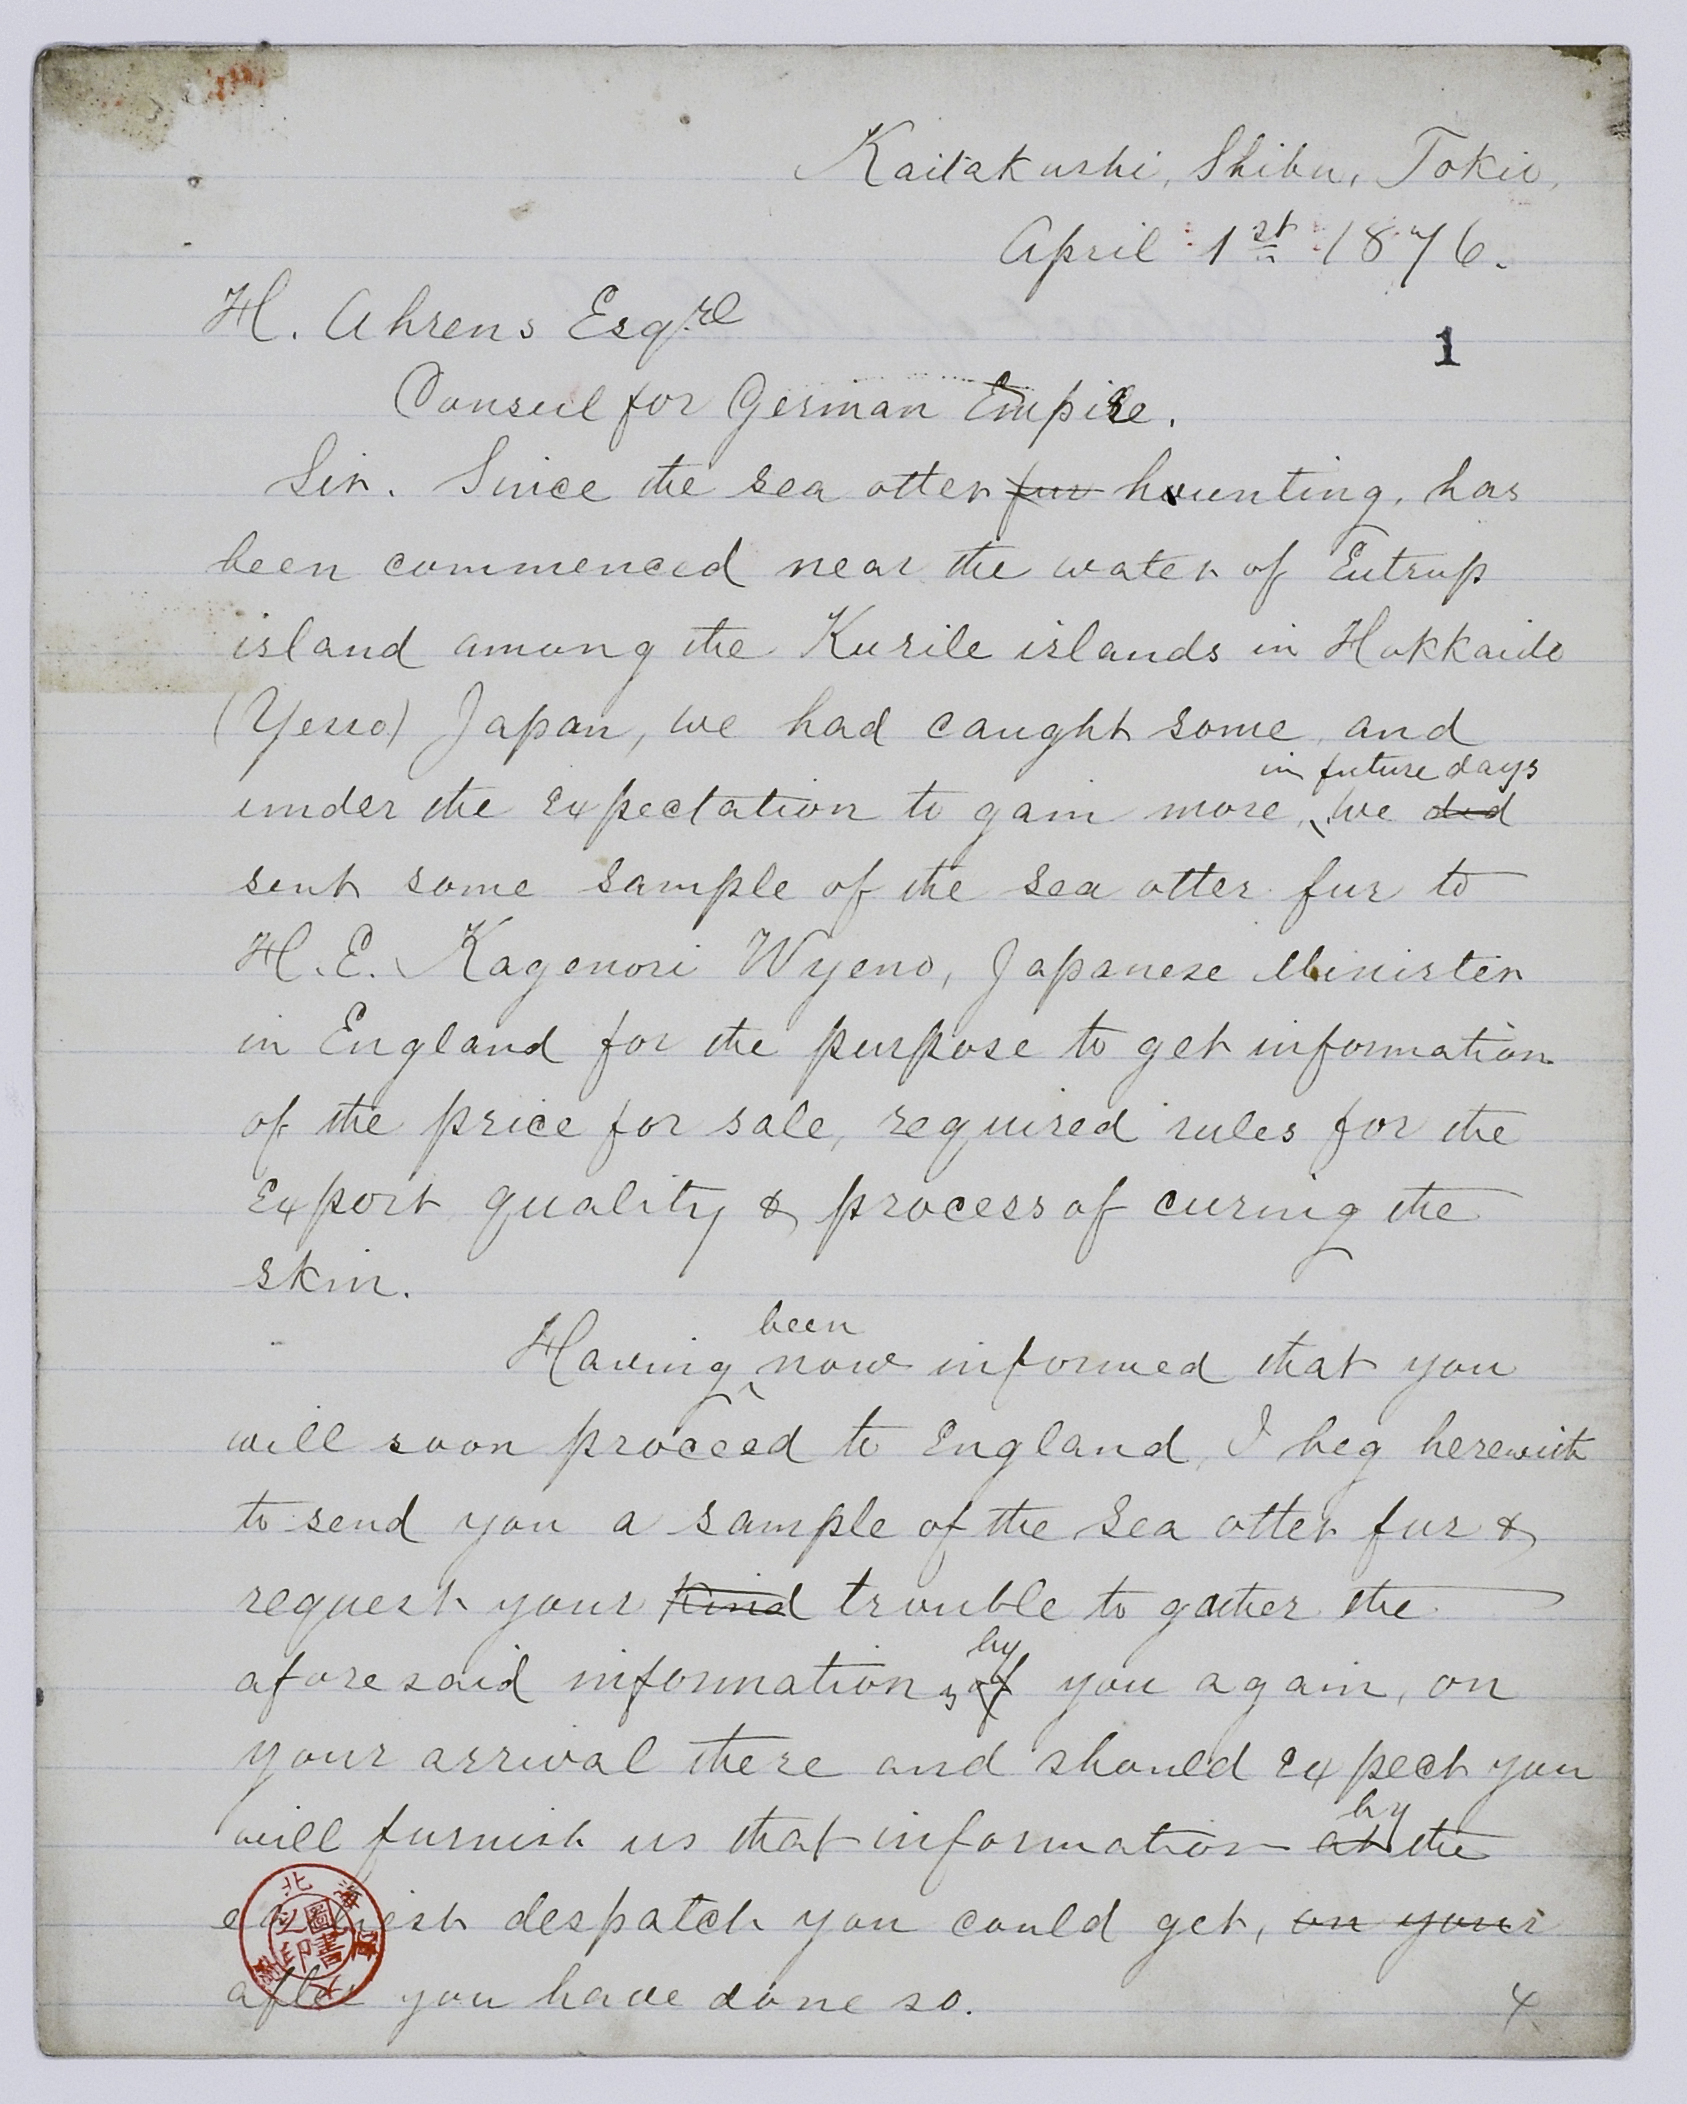 Kaitakushi, Shiba, Tokio,
April 1st 1876.
H. Ahrens Esqre
1
Consul for German Empire.
Sir. Since the sea otter fur hunting, has
been commenced near the water of Eutrup
island among the Kurile islands in Hokkaido
(Yesso) Japan, we had caught some, and
in future days
under the expectation to gain more, we did
sent some sample of the sea otter fur to
H. E. Kagenori Wyeno, Japanese Minister
in England for the purpose to get information
of the price for sale, required rules for the
export quality & process of curing the
skin.
been
Having now informed that you
will soon proceed to England, I beg herewith
to send you a sample of the sea otter fur &
request your kind trouble to gather the
by
aforesaid informations of you again, on
your arrival there and should expect you
by
will furnish us that information at the
earliest despatch you could get, on your
after you have done so.
北海道大學
圖書之印